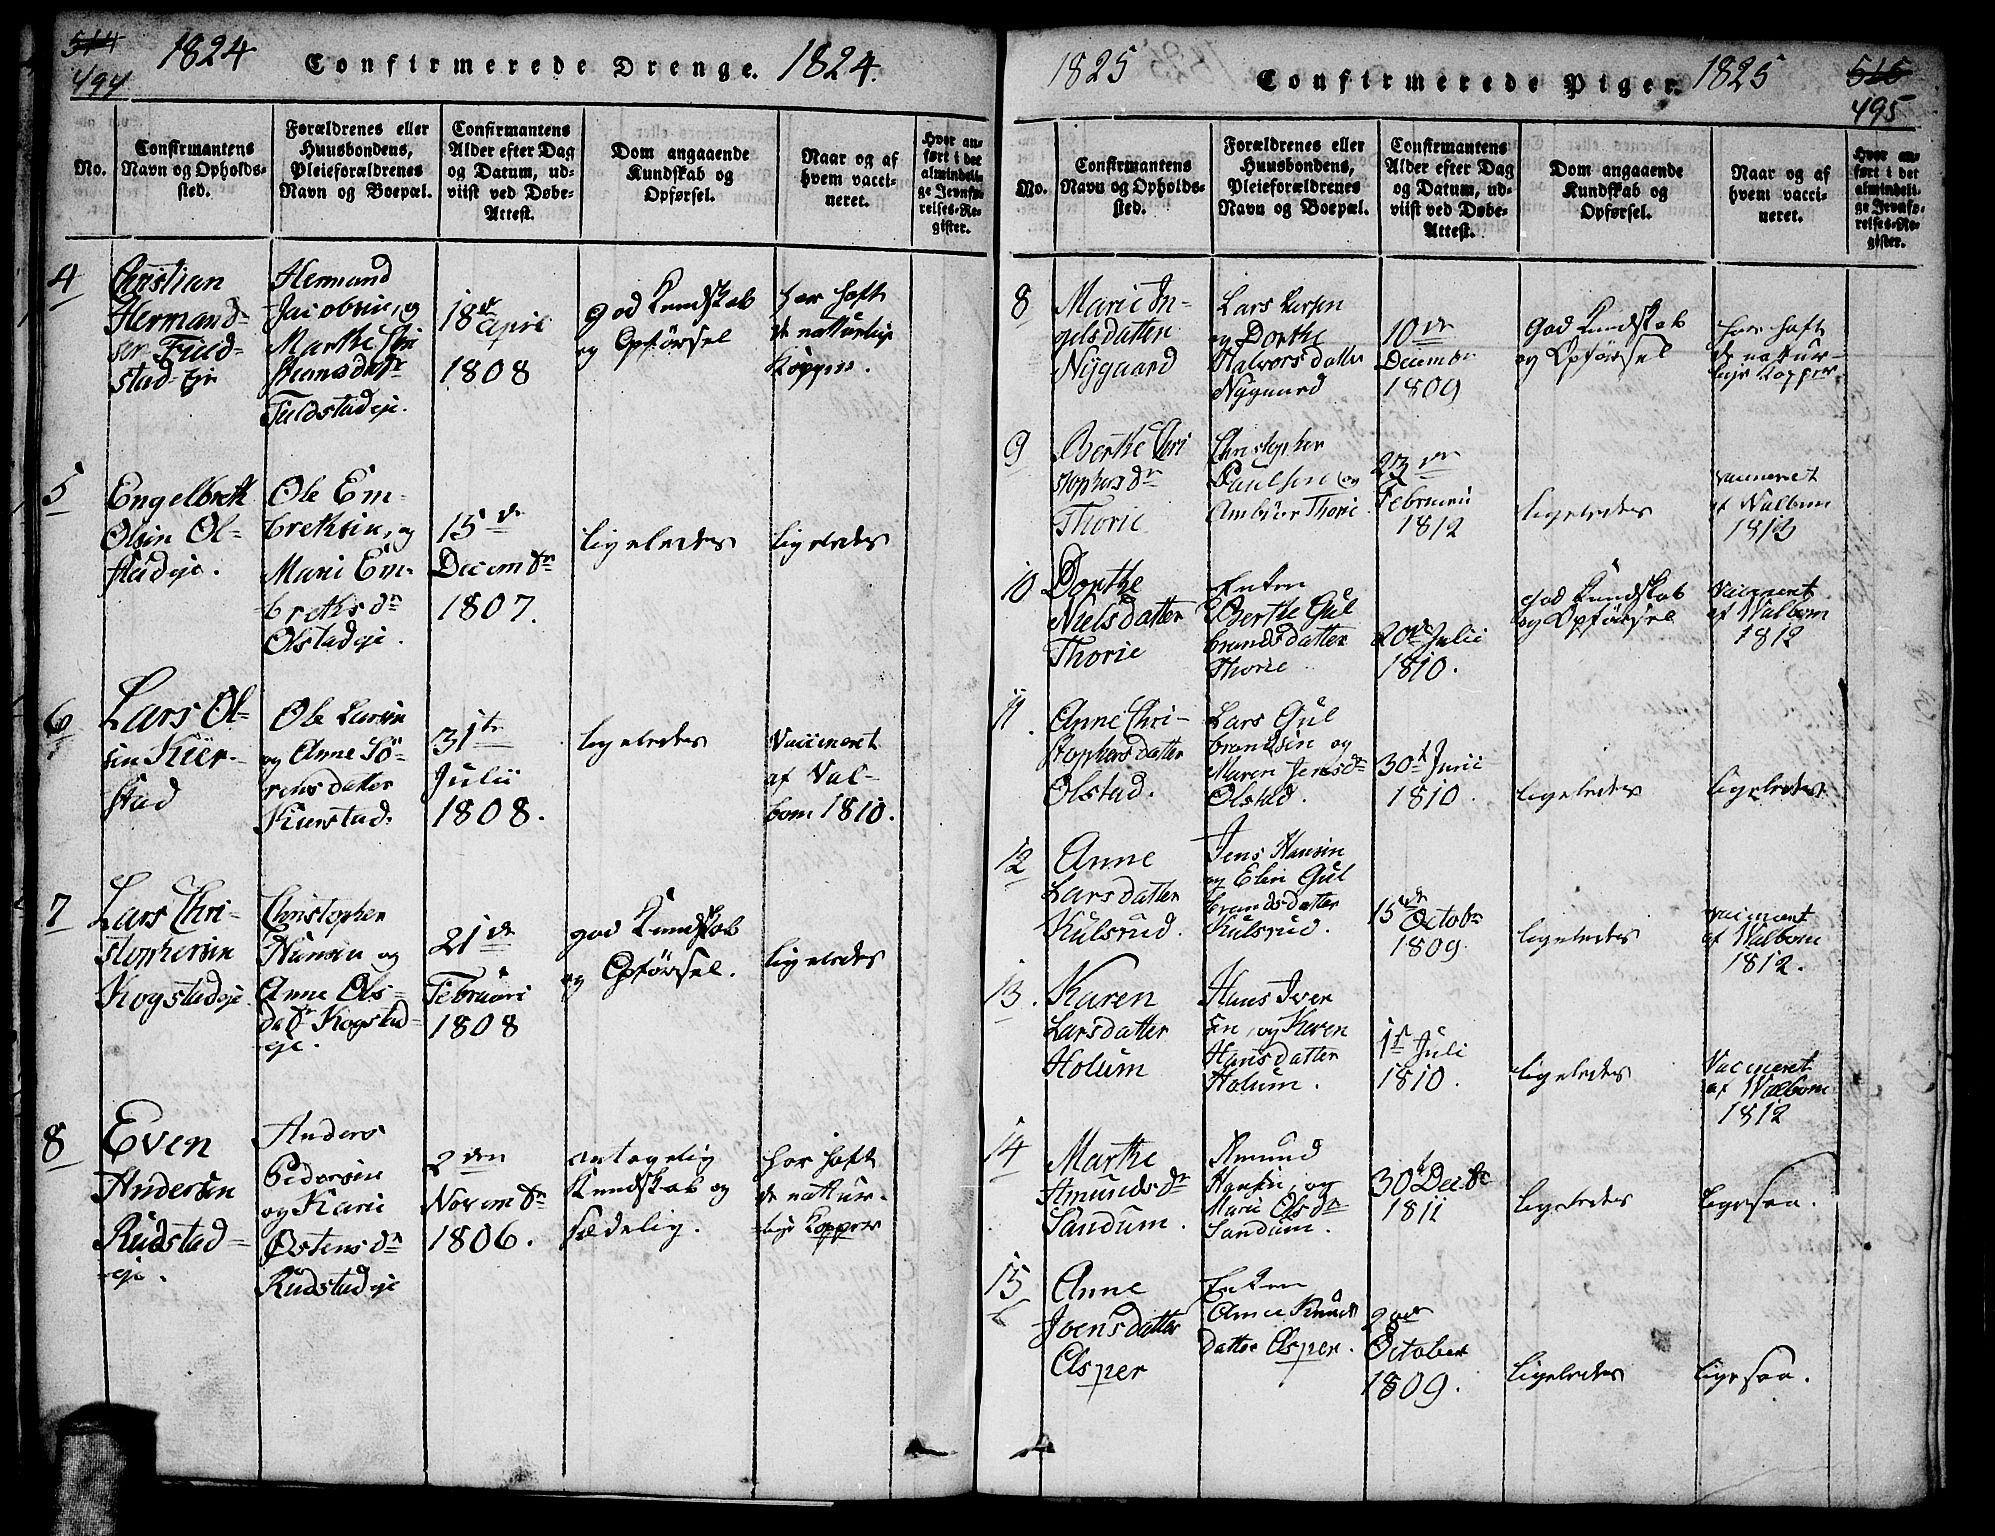 514
494
1824
Confirmerede Drenge.
1824.
No.
Confirmantens
Navn og Opholds-
sted.
Forældrenes eller
Huusbondens,
Pleieforældrenes
Navn og Boepæl.
Confirmantens
Alder efter Dag
og Datum, ud-
viist ved Døbe-
Attest.
Dom angaaende
Kundskab og
Opførsel.
Naar og af
hvem vacci-
neret.
Hvor an-
ført i det
almindeli-
ge Jevnfø-
relses-Re-
gister.
4
Christian
Hermand-
sen
stad-Eje
Hermand
Jacobsen, og
Marthe
18de April
1808
god Kundskab
og Opførsel
har haft
de naturlige
Kopper.
5
Engelbreth
Olsen Ol-
stadeje.
Ole Em-
brethsen, og
Marie Em-
brethsdr
Olstadeje.
15de
Decembr
1807.
ligeledes
ligeledes
6
Lars Ol-
sen Kier-
stad
Ole Larsen
og Anne Sö-
rensdatter
Kierstad.
31te
Julii
1808.
ligeledes
Vaccineret
af Val-
bom 1810.
7
Lars Chri-
stophersen
Kogstadeje
Christopher
Hansen og
Anne Ols-
datr Kogstad-
eje.
21de
Februari
1808
god Kundskab
og Opførsel.
ligeledes
8
Even
Andersen
Rudstad-
eje.
Anders
Pedersen
og Karie
Østensdr
Rudstadeje
2den
Novembr
1806.
antagelig
Kundskab og
sædelig.
har haft
de nattur-
lige Kopper
1825
Confirmerede Piger.
1825
515
495
No.
Confirmantens
Navn og Opholds-
sted.
Forældrenes eller
Huusbondens,
Pleieforældrenes
Navn og Boepæl.
Confirmantens
Alder efter Dag
og Datum, ud-
viist ved Døbe-
Attest.
Dom angaaende
Kundskab og
Opførsel.
Naar og af
hvem vacci-
neret.
Hvor an-
ført i det
almindeli-
ge Jevnfø-
relses-Re-
gister.
8
Marie In-
gelsdatter
Nygaard
Lars Larsen
og Dorthe
Halvorsdatter
Nygaard
10de
Decembr
1809
God Kundskab
og Opførsel
har haft
de nattur-
lige Kopper.
9
Berthe Chri
stophersdr
Thorie
Christopher
Paulsen og
Thorie
23de
Februarii
1812
ligeledes
vaccineret
af Valbom
1813
10
Dorthe
Nielsdatter
Thorie
Enken
Berthe Gul
brandsdatter
Thorie
20de Julii
1810.
god Kundskab
og Opførsel
Vaccineret
af Valbom
1812
11.
Anne Chri-
stophersdatter
Olstad.
Lars Gul
brandsen og
Maren Jensdr
Olstad.
30t Junii
1810.
ligeledes
ligeledes
12
Anne
Larsdatter
Kulsrud.
Jens Hansen
og Elen Gul
brandsdatter
Kulsrud.
15de Octobr
1809.
ligeledes
vaccineret
af Valbom
1812.
13.
Karen
Larsdatter
Holum
Hans Iver
sen, og Karen
Hansdatter
Holum.
1st Juli
1810.
ligeledes
Vaccineret
af Valbom
1812
14
Marthe
Amundsdr
Sandum.
Amund
Hansen, og
Marie Olsdr
Sandum.
30t Decbr
1811
ligeledes
ligesaa.
15
Anne
Joensdatter
Asper
Enken
Anne Knuds
datter Asper.
October
1809.
ligeledes
ligesaa.